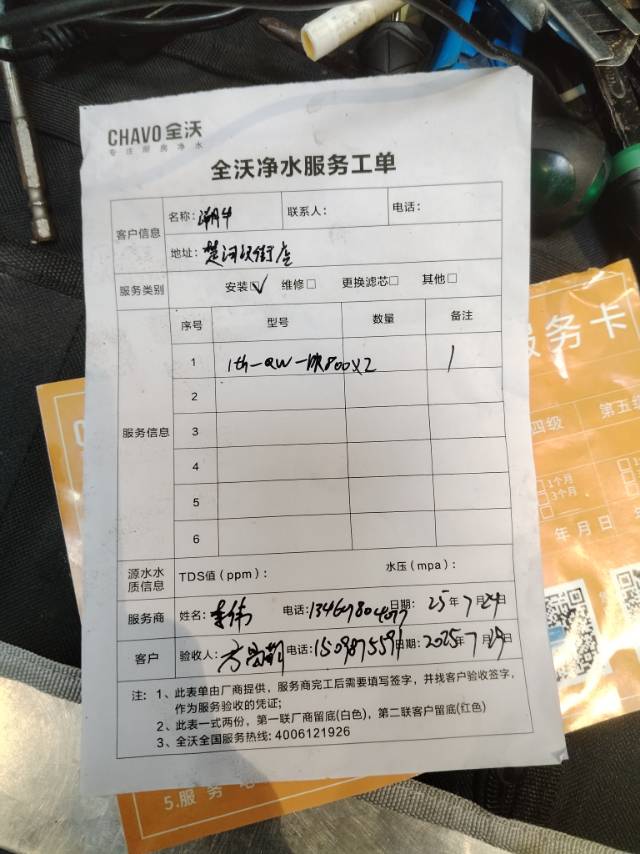 CHAVO 全沃
专注厨房净水
全沃净水服务工单
客户信息
名称: 联系人: 电话:
地址: 楚河汉街店
服务类别 安装☑ 维修□ 更换滤芯□ 其他□
服务信息
序号 型号 数量 备注
1
2
3
4
5
6
源水水质信息 TDS值(ppm): 水压(mpa):
服务商 姓名: 李伟 电话: 日期: 25年7月24日
客户 验收人: 电话: 日期: 2025年7月 日
注: 1、此表单由厂商提供，服务商完工后需要填写签字，并找客户验收签字，
作为服务验收的凭证;
2、此表一式两份，第一联厂商留底(白色)，第二联客户留底(红色)
3、全沃全国服务热线: 4006121926
服务卡
四级 第五级
1个月
3个月
年月日
5.服务